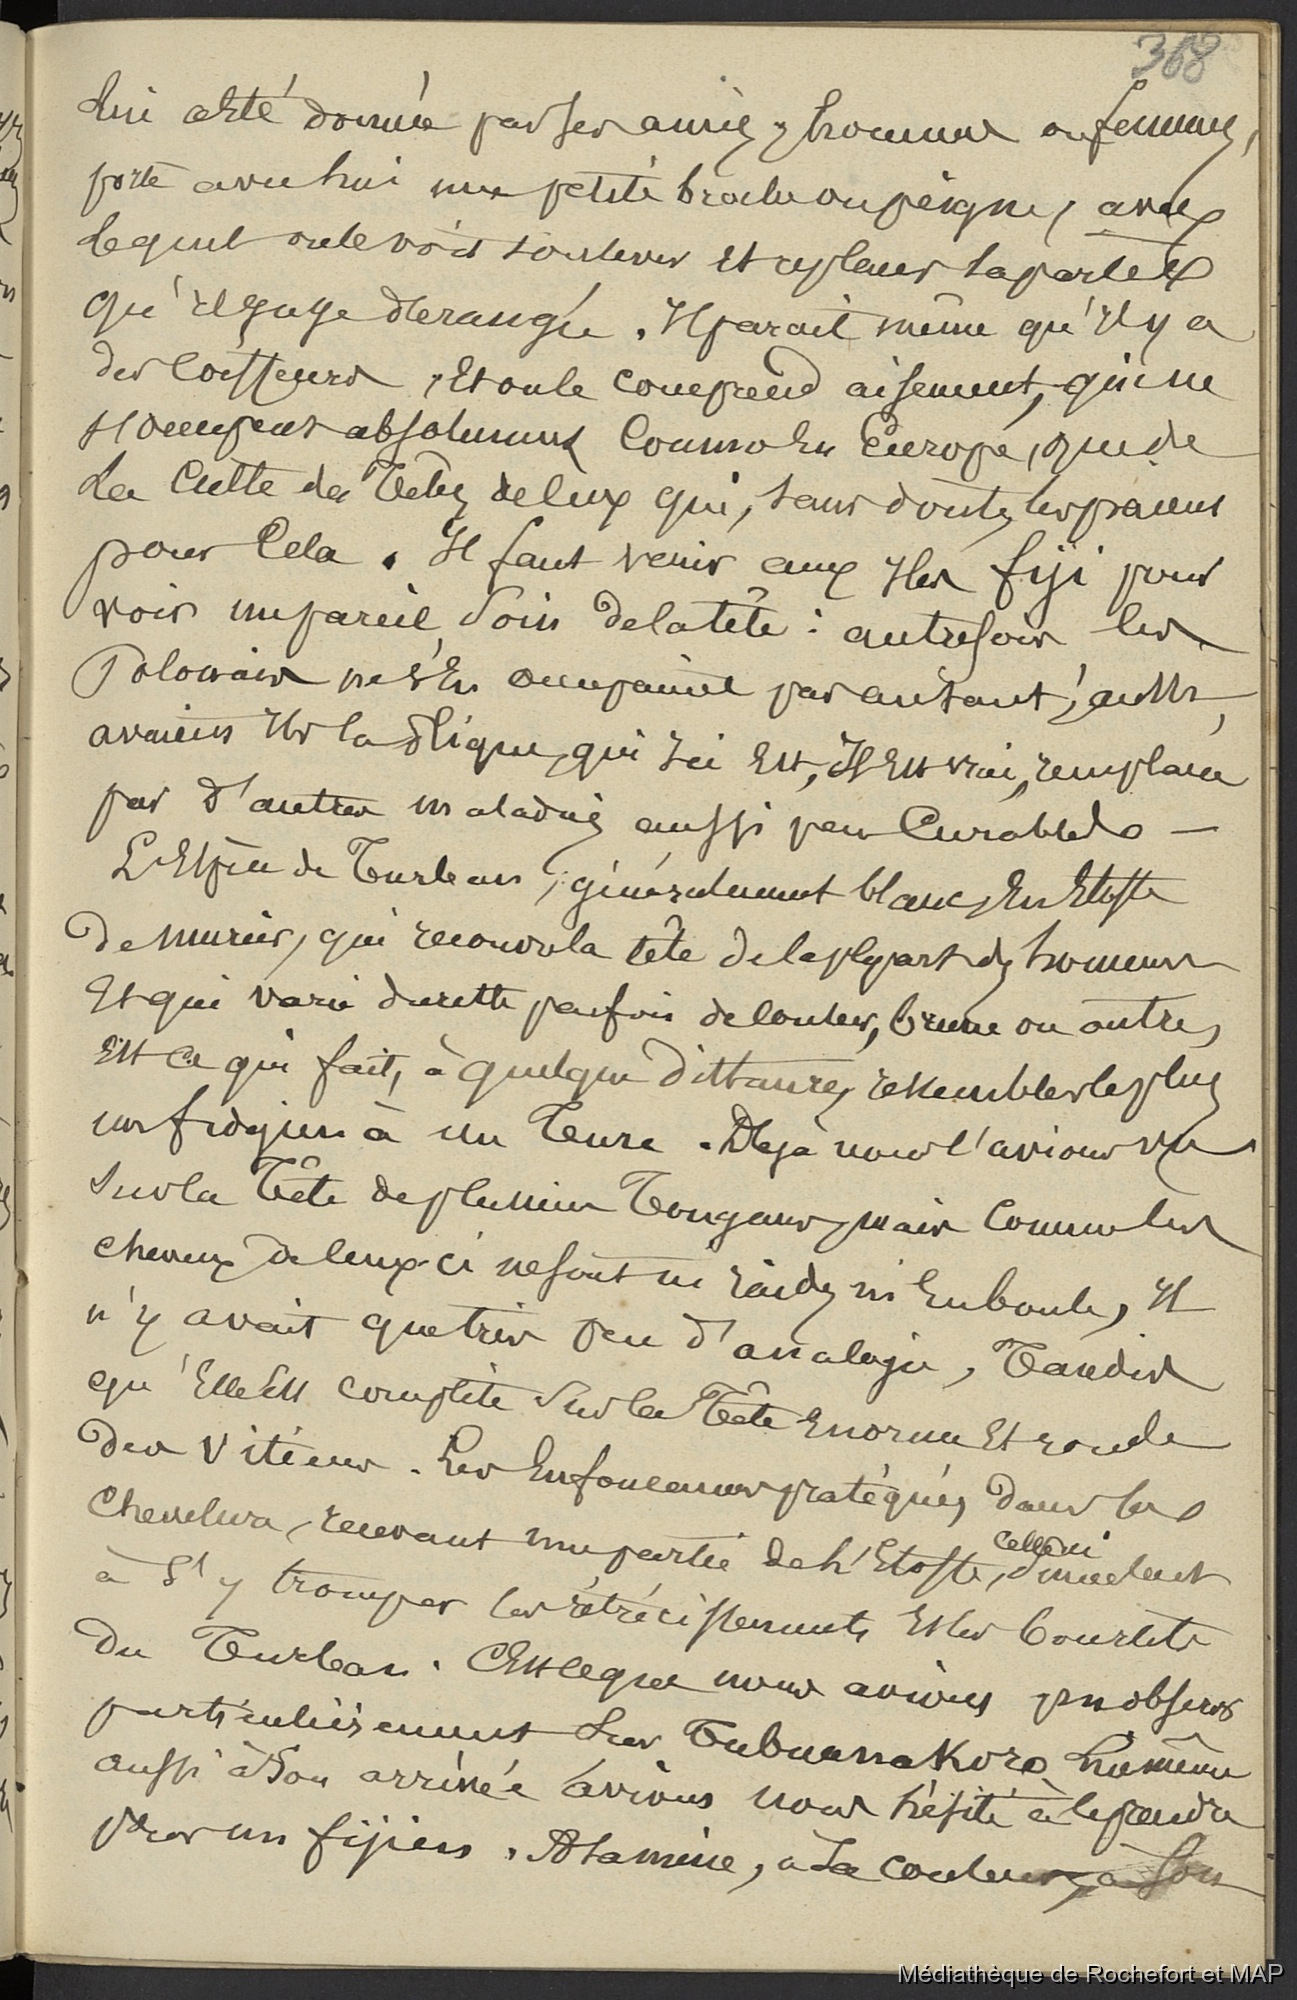 368
lui a été donnée par ses amis, homme ou femmes,
porte avec lui une petite broche ou peigne, avec
lequel on le voit soulever et replacer la partie
qu'il juge dérangée. Il parait même qu'il y a
des coiffeurs, et on le comprend aisement, qui ne
s'occupent absolument comme en Europe, que de
la culte des têtes de ceux qui, sans doute, les paient
pour cela. Il faut venir aux Iles fiji pour
voir un pareil soin de la tête : autrefois les
Polonais ne s'en occupaient pas autant, aussi
avaient ils la plique, qui ici est, il est vrai, remplacée
par d'autres maladies aussi peu curables —
L'espèce de Turban, généralement blanc, en étoffe
de murier, qui recouvre la tête de la plupart des hommes
et qui varie du reste parfois de couleur, brune ou autre,
est ce qui fait, à quelque distance, ressembler le plus
un fidgien à un Turc. Déjà nous l'avions vu
sur la Tête de plusieurs Tongans, mais comme les
cheveux de ceux-ci ne sont ni raides ni en boule, il
n'y avait que très peu d'analogie, Tandis
qu'elle est complète sur la Tête énorme et ronde
des Vitiens. Les enfoncements pratiqués dans la
chevelure, recevant une partie de l'étoffe, celle ci
à s'y tromper les rétrécissements et les bourlets
du Turban. C'est ce que nous avions pu observer
particulièrement sur Tubuanakoro lui même
aussi à son arrivée avions nous hésité à le prendre
pour un fijien. A sa mine, à sa couleur, à son
Médiathèque de Rochefort et MAP